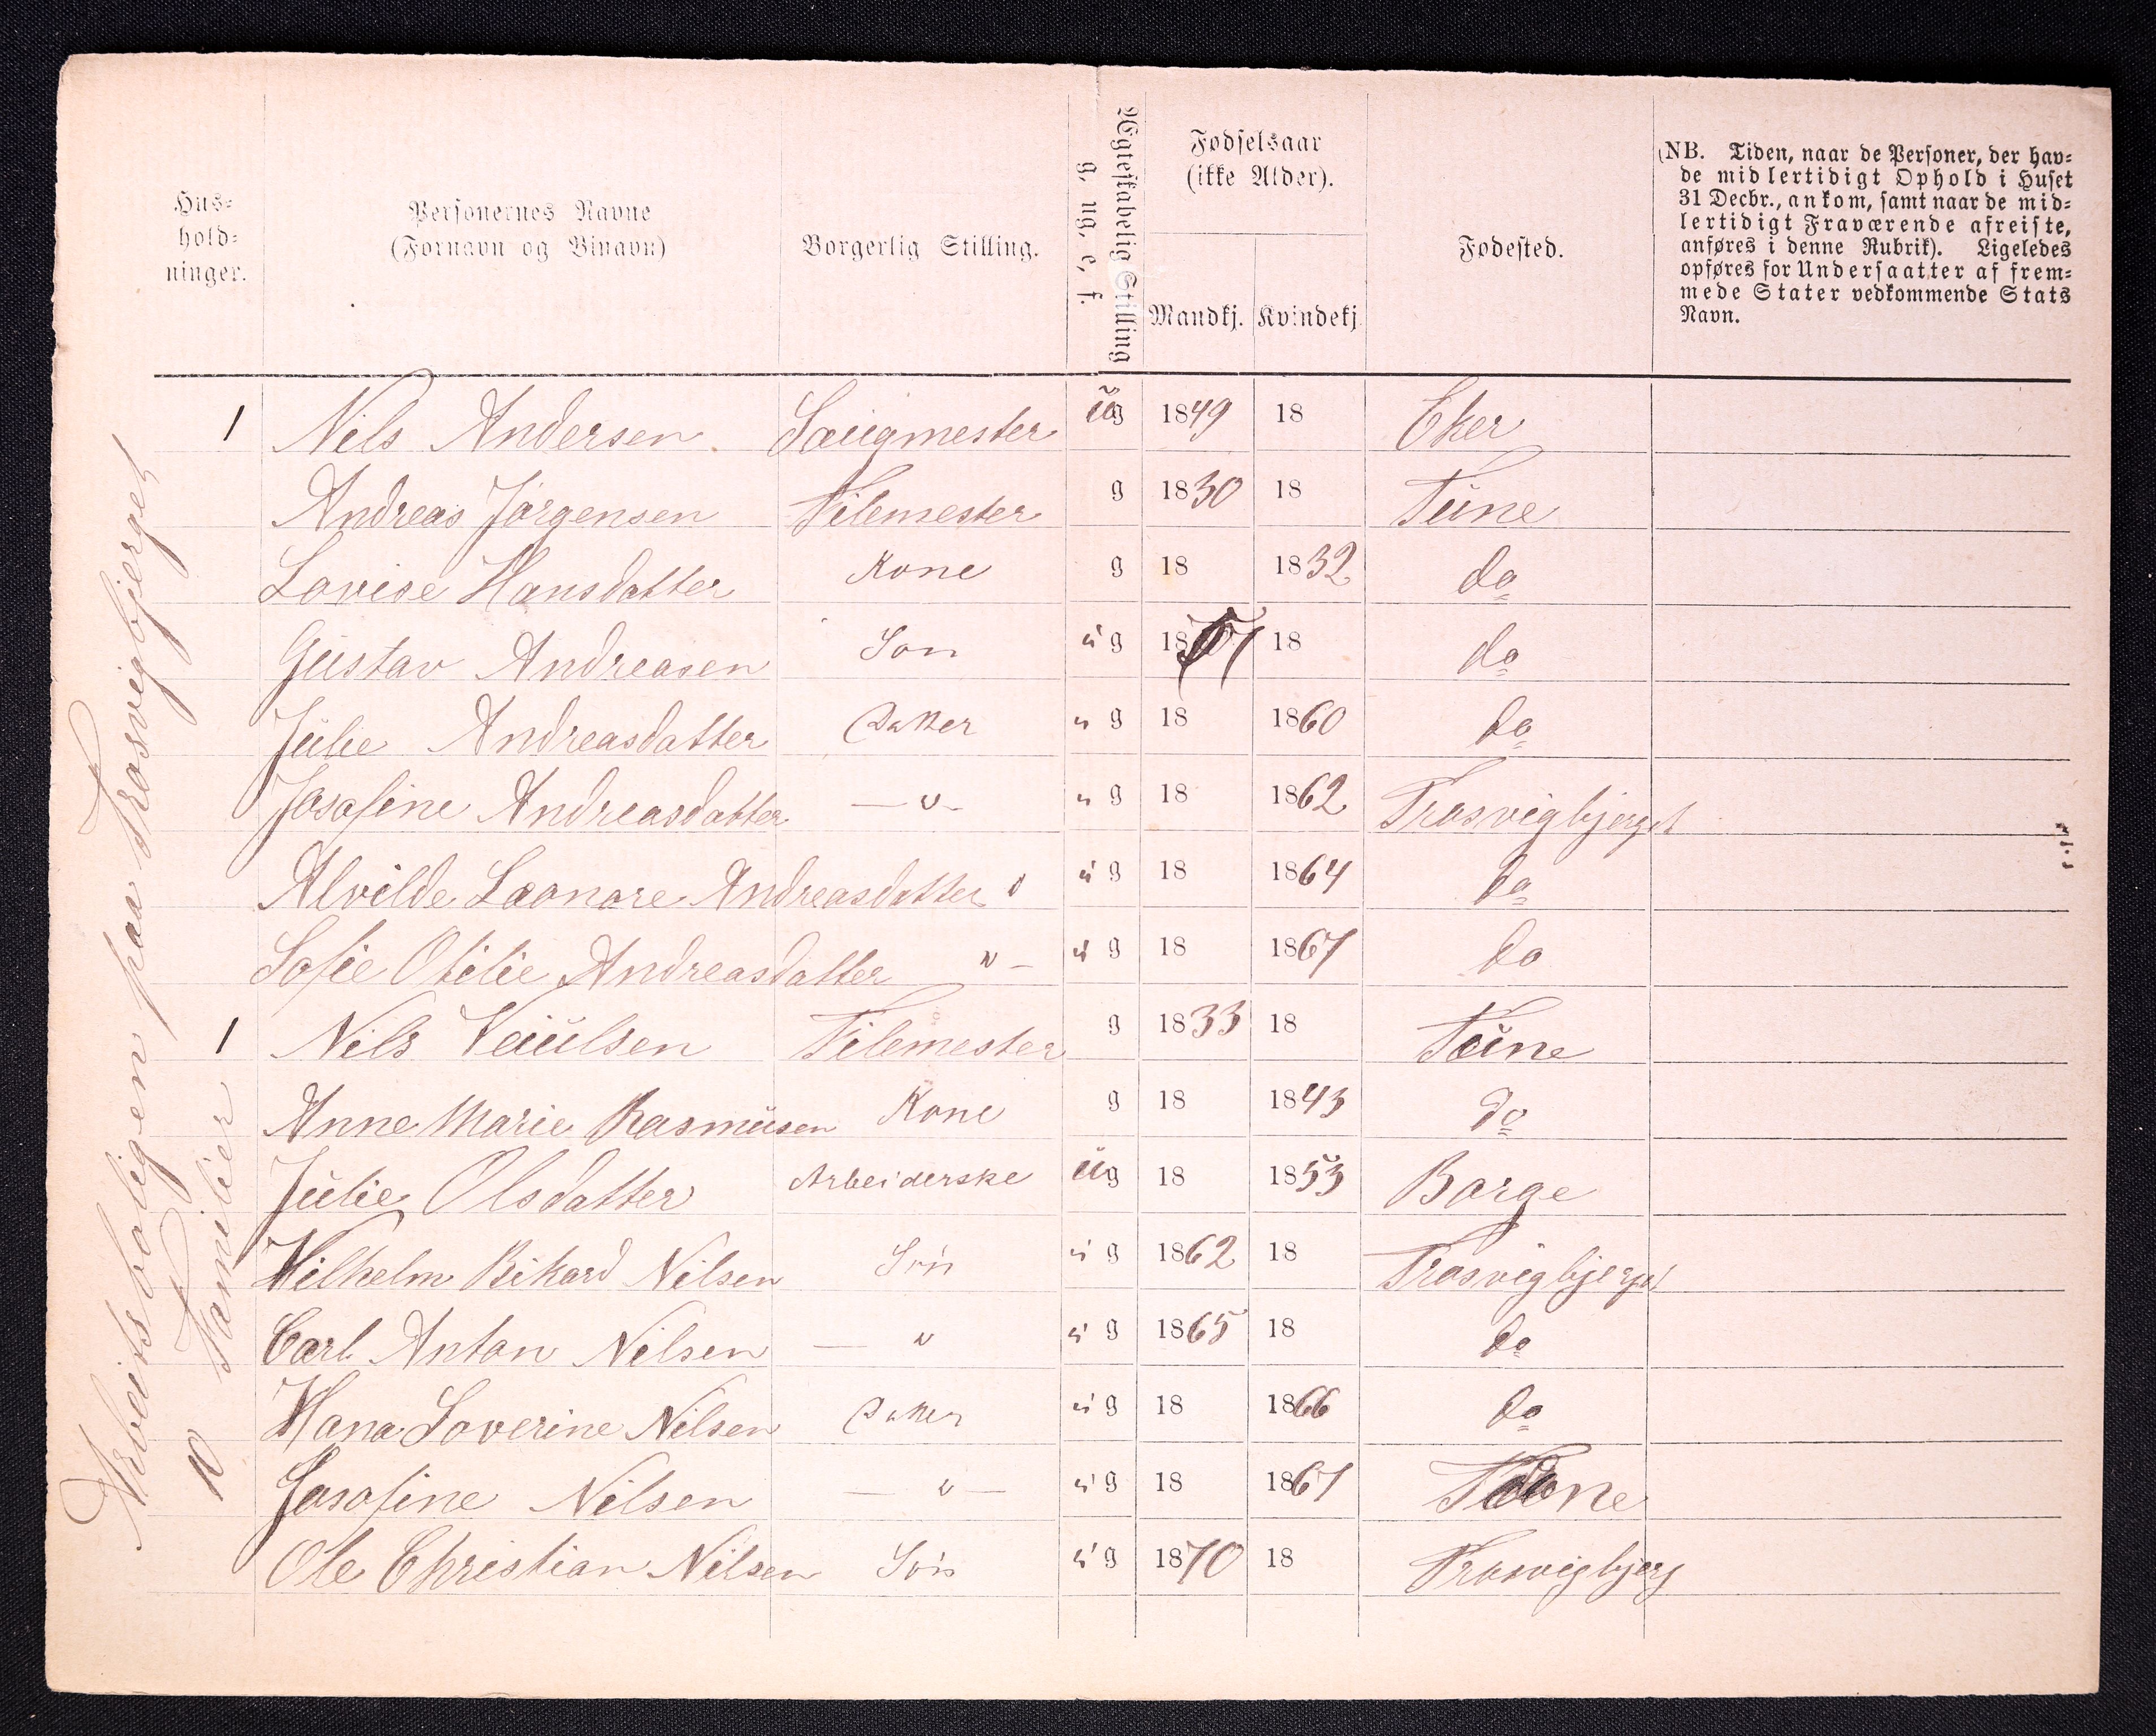 Hus-
hold-
ninger.
Personernes Navne
(Fornavn og Binavn)
Borgerlig Stilling.
Ægteskabelig Stilling
g, ug, e, f.
Fødselsaar
(ikke Alder).
Mandkj. Kvindekj
Fødested.
(NB. Tiden, naar de Personer, der hav-
de midlertidigt Ophold i Huset
31 Decbr., ankom, samt naar de mid-
lertidigt Fraværende afreiste,
anføres i denne Rubrik). Ligeledes
opføres for Undersaatter af frem-
mede Stater vedkommende Stats
Navn.
Arbeitsboligen paa Trosvigbjerget
10 Familier
1 Nils Andersen Saugmester ug 1849 18 Eker
Andreas Jørgensen Filemester g 1830 18 Tune
Lovise Hansdatter Kone g 18 1832 do
Gustav Andreasen Søn ug 18 18 do
Julie Andreasdatter Datter ug 18 1860 do
Josofine Andreasdatter — " — ug 18 1862 Trosvigbjerget
Alvilde Leonore Andreasdatter " ug 18 1864 do
Sofie Otilie Andreasdatter " — ug 18 1867 do
1 Nils Filemester g 1833 18 Tune
Anne Marie Rasmusen Kone g 18 1843 do
Julie Olsdatter Arbeiderske ug 18 1853 Borge
Vilhelm Rikard Nilsen Søn ug 1862 18 Trosvigbjerget
Carl Anton Nilsen — " ug 1865 18 do
Hana Soverine Nilsen Datter ug 18 1866 do
Josofine Nilsen — " — ug 18 1867
Ole Christian Nilsen Søn ug 1870 18 Trosvigbjerg